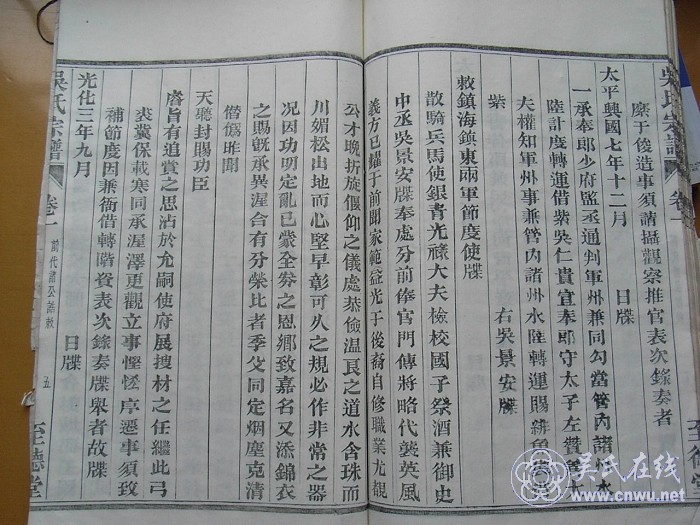 吳氏宗譜
卷一
至德堂
縻于俊造事須請攝觀察推官表次錄奏者
日牒
太平興國七年十二月
一承奉郎少府監丞通判軍州兼同勾當管內諸
陸計度轉運借紫吳仁貴宜奉郎守太子左贊
夫權知軍州事兼管內諸州水陸轉運賜緋魚
紫
右吳景安牒
敕鎮海鎮東兩軍節度使牒
散騎兵馬使銀青光祿大夫檢校國子祭酒兼御史
中丞吳景安牒奉處分前俸官門傳將略代襲英風
義方已繼于前聞家範益光于後裔自修職業尤覩
公才晚折旋偃仰之儀處恭儉温良之道水含珠而
川媚松出地而心堅早彰可久之規必作非常之器
況因功明定亂已蒙全劵之恩鄉致嘉名又添錦衣
之賜旣承異渥合有分榮比者季父同定烟塵克清
僭僞昨聞
天聽封賜功臣
睿旨有追賞之思沾於允嗣使府展搜材之任繼此弓
裘冀保載寒同承渥澤更觀立事慳遙序遷事須致
補節度因兼衙借轉階資表次錄奏牒舉者故牒
光化三年九月
日牒
吳氏宗譜
卷一
前代諸公誥敕
五
至德堂
吳氏在线
www.cnwu.net